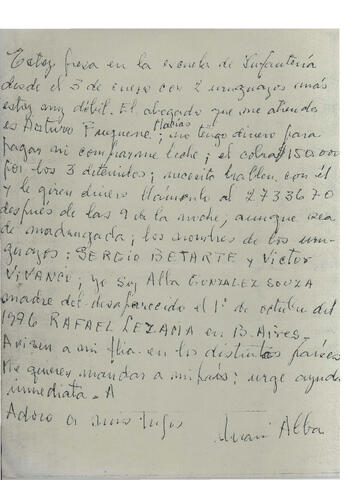 Estoy presa en la escuela de Infantería
desde el 3 de enero con 2 uruguayos más
estoy muy débil. El abogado que me atiende
es Arturo Matías; no tengo dinero para
pagar ni comprarme leche; él cobra $150.000
por los 3 detenidos; necesita hablen con él
y le giren dinero llámenlo al 2733670
después de las 9 de la noche, aunque sea
de madrugada; los nombres de los uru-
guayos: SERGIO BETARTE y VICTOR
VIVANCO; yo soy Alba GONZALEZ SOUZA
madre del desaparecido el 1º de octubre del
1976 RAFAEL LEZAMA en B. Aires.
Avisen a mi flia. en los distintos países
Me quieren mandar a mi país; urge ayuda
inmediata. A
Adoro a mis hijos
Alba